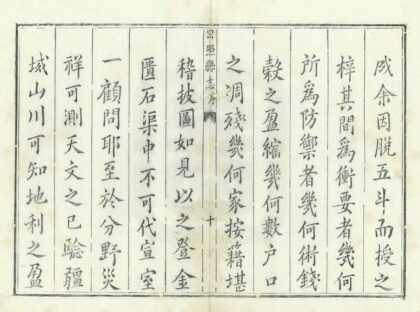 成余因脫五斗而授之
梓其間為衝要者幾何
所為防禦者幾何術錢
穀之盈縮幾何數戶口
之凋殘幾何家按籍堪
縣志序
十
稽披圖如見以之登金
匱石渠中不可代宣室
一顧問耶至於分野災
祥可測天文之已驗疆
域山川可知地利之盈